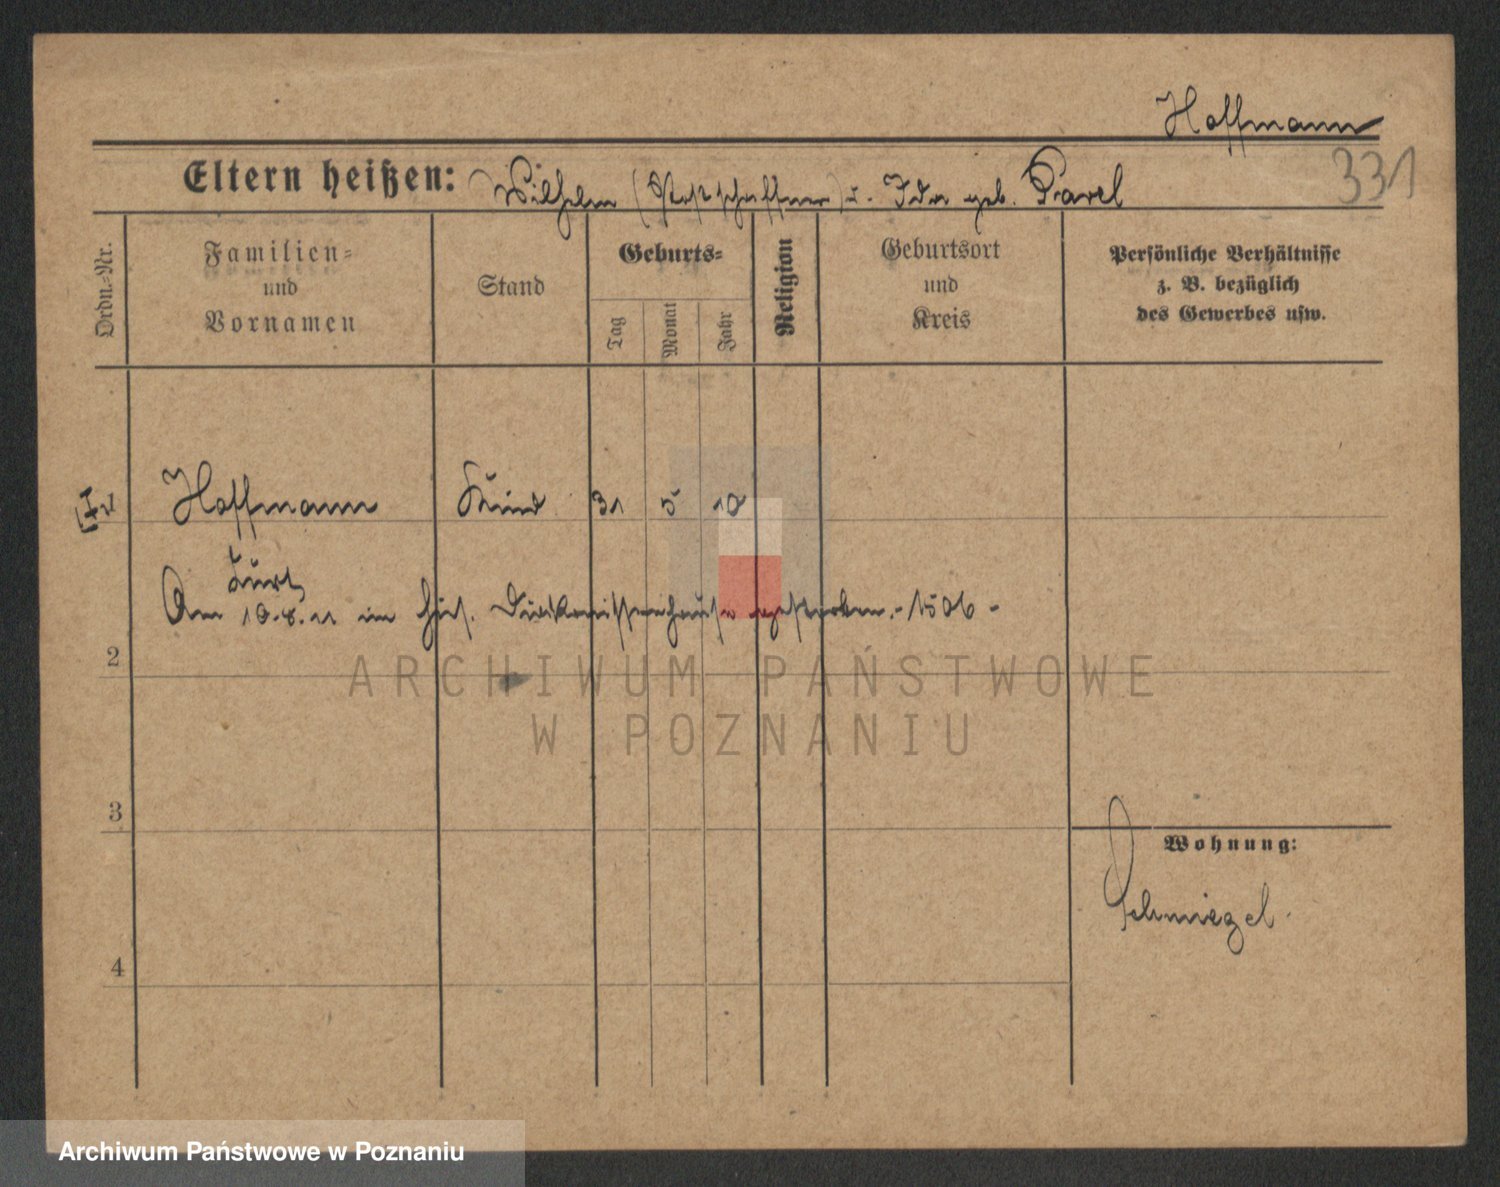 Hoffmann
331
Eltern heißen: Wilhelm (Postschaffner) u. Ida geb. Pavel
Ordn.-Nr.
Familien-
und
Vornamen
Stand
Geburts-
Tag
Monat
Jahr
Religion
Geburtsort
und
Kreis
Persönliche Verhältnisse
z. B. bezüglich
des Gewerbes usw.
Hoffmann Kind 31 5 10
Kurt
Am 10.8.11 im hies. Diakonissenhause gestorben. - 1506 -
2
ARCHIWUM PAŃSTWOWE
W POZNANIU
3
Wohnung:
Schmiegel.
4
Archiwum Państwowe w Poznaniu